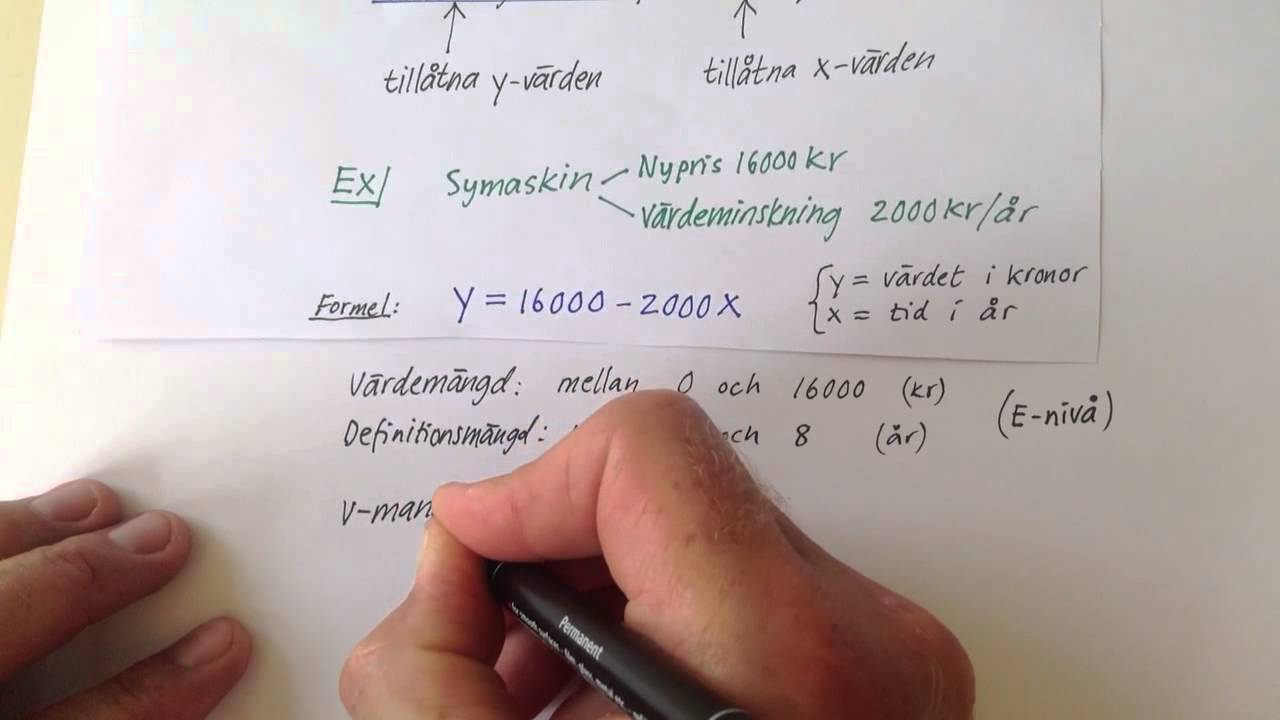 tillåtna y-värden
tillåtna x-värden
Ex/ Symaskin Nypris 16000 kr
värdeminskning 2000 kr/år
Formel: y = 16000 - 2000x
y = värdet i kronor
x = tid i år
Värdemängd: mellan 0 och 16000 (kr)
Definitionsmängd: och 8 (år)
(E-nivå)
V-män
Permanent